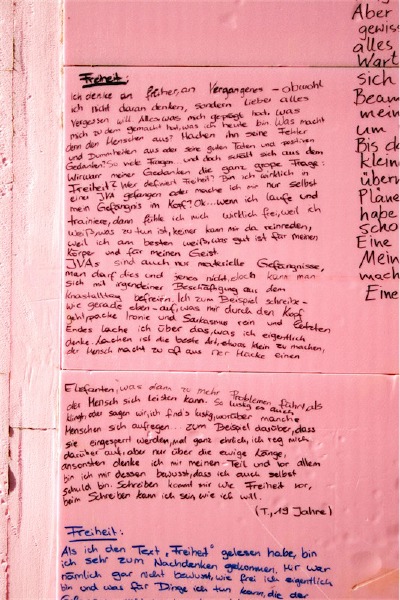 Freiheit:
Ich denke an früher, an Vergangenes - obwohl
ich nicht daran denken, sondern lieber alles
vergessen will. Alles was mich geprägt hat, was
mich zu dem gemacht hat, was ich heute bin. Was macht
denn den Menschen aus? Machen ihn seine Fehler
und Dummheiten aus oder seine guten Taten und positiven
Gedanken? So viele Fragen... und doch schält sich aus dem
Wirrwarr meiner Gedanken die ganz große Frage:
Freiheit? Wer definiert Freiheit? Bin ich wirklich in
einer JVA gefangen oder mache ich mir nur selbst
mein Gefängnis im Kopf? Ok... wenn ich laufe und
trainiere, dann fühle ich mich wirklich frei, weil ich
weiß, was zu tun ist, keiner kann mir da reinreden,
weil ich am besten weiß, was gut ist für meinen
Körper und für meinen Geist.
JVAs sind auch nur materielle Gefängnisse,
man darf dies und jenes nicht, doch kann man
sich mit irgendeiner Beschäftigung aus dem
Knastalltag befreien. Ich zum Beispiel schreibe -
wie gerade eben - auf, was mir durch den Kopf
geht, packe Ironie und Sarkasmus rein und letzten
Endes lache ich über das, was ich eigentlich
denke. Lachen ist die beste Art, etwas klein zu machen,
der Mensch macht zu oft aus der Mücke einen
Elefanten, was dann zu mehr Problemen führt, als
der Mensch sich leisten kann. So lustig es auch
klingt, oder sagen wir, ich find's lustig, worüber manche
Menschen sich aufregen... zum Beispiel darüber, dass
sie eingesperrt wurden, mal ganz ehrlich, ich reg mich
darüber auf, aber nur über die ewige Länge,
ansonsten denke ich mir meinen Teil und vor allem
bin ich mir dessen bewusst, dass ich auch selbst
schuld bin. Schreiben kommt mir wie Freiheit vor,
beim Schreiben kann ich sein wie ich will.
(T., 19 Jahre)
Freiheit:
Als ich den Text „Freiheit" gelesen habe, bin
ich sehr zum Nachdenken gekommen. Mir war
nämlich gar nicht bewusst, wie frei ich eigentlich
bin und was für Dinge ich tun kann, die der
Aber
gewiss
alles
Wart
sich
Beam
mein
um
Bis d
klein
über
Pläne
habe
scho
Eine
Mein
mach
Eine